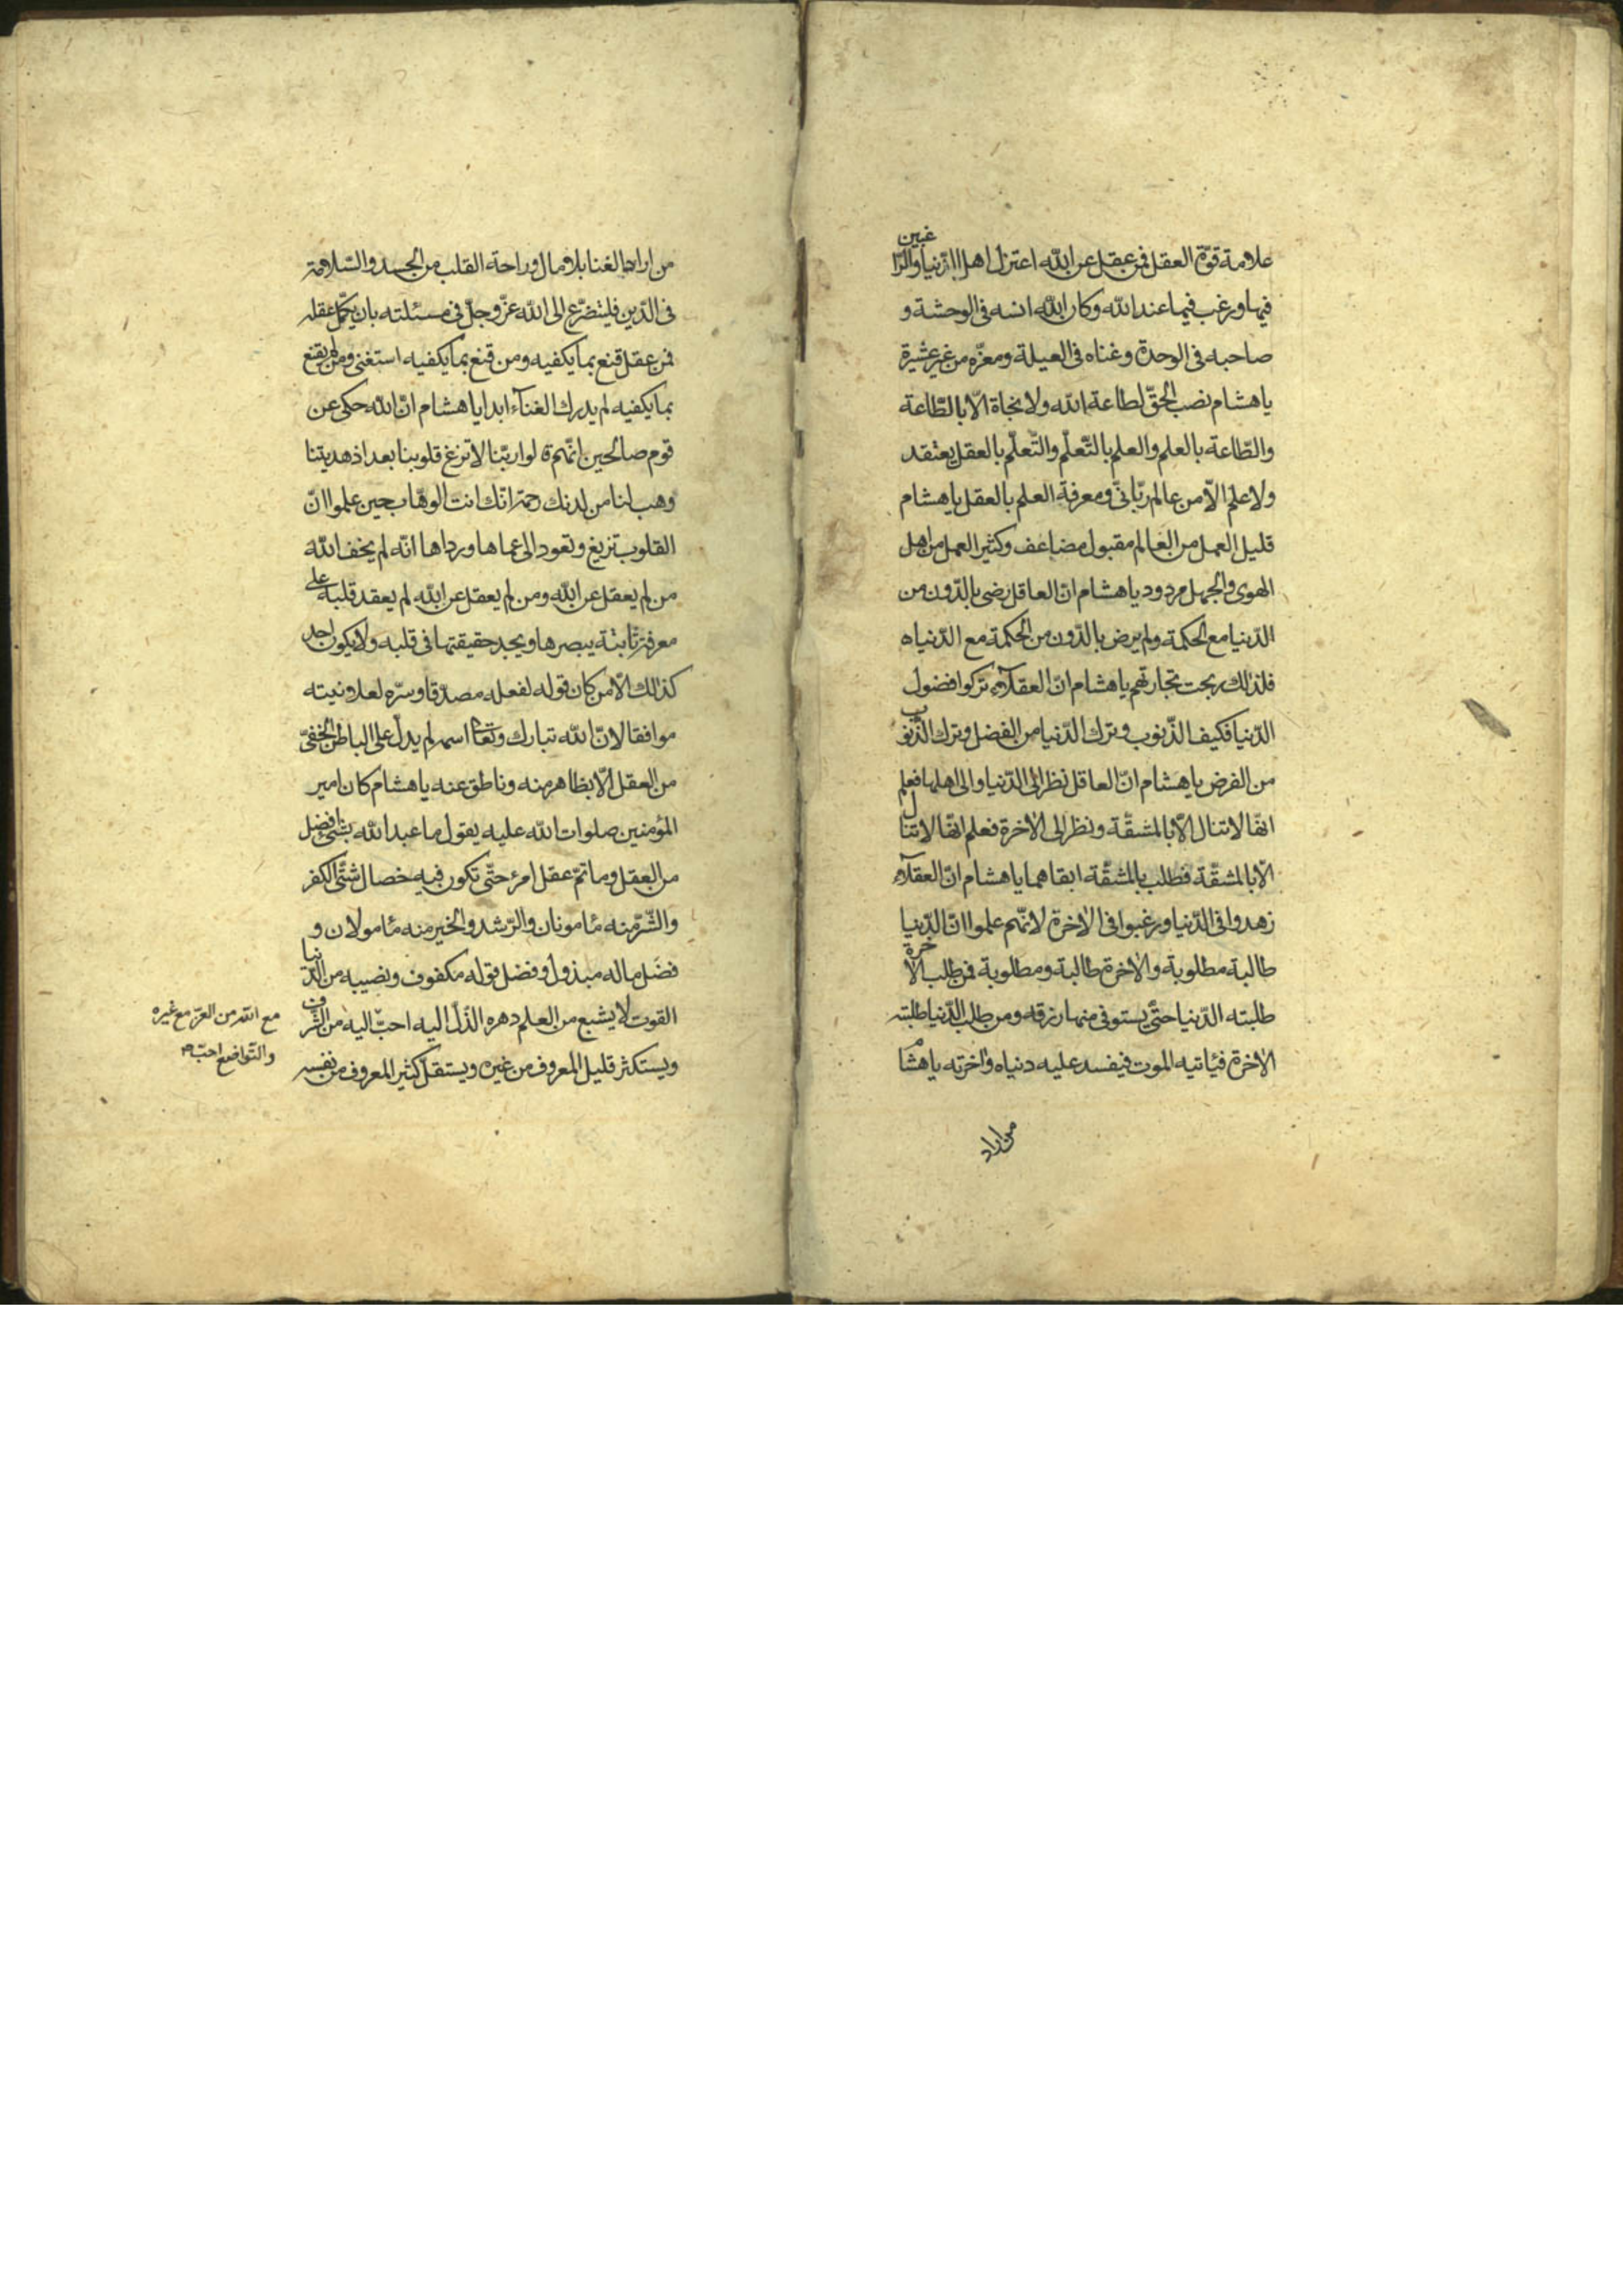 علامة قوّة العقل فمن عقل عن الله اعتزل اهل الدّنيا والرّاغبين
فيها ورغب فيما عند الله وكان الله انسه فى الوحشة و
صاحبه فى الوحدة وغناه فى العيلة ومعزّه من غير عشيرة
يا هشام نصب الحقّ لطاعة الله ولا نجاة الّا بالطّاعة
والطّاعة بالعلم والعلم بالتّعلّم والتّعلّم بالعقل يعتقد
ولا علم الّا من عالم ربّانىّ ومعرفة العلم بالعقل يا هشام
قليل العمل من العالم مقبول مضاعف وكثير العمل من اهل
الهوى والجهل مردود يا هشام انّ العاقل رضى بالدّون من
الدّنيا مع الحكمة ولم يرض بالدّون من الحكمة مع الدّنياه
فلذلك ربحت تجارتهم يا هشام انّ العقلآء تركوا فضول
الدّنيا فكيف الذّنوب وترك الدّنيا من الفضل وترك الذّنوب
من الفرض يا هشام انّ العاقل نظر الى الدّنيا والى اهلها فعلم
انّها لا تنال الّا بالمشقّة ونظر الى الاخرة فعلم انّها لا تنال
الّا بالمشقّة فطلب بالمشقّة ابقاهما يا هشام انّ العقلآء
زهدوا فى الدّنيا ورغبوا فى الاخرة لانّهم علموا انّ الدّنيا
طالبة مطلوبة والاخرة طالبة ومطلوبة فمن طلب الاخرة
طلبته الدّنيا حتّى يستوفى منها رزقه ومن طلب الدّنيا طلبته
الاخرة فيأتيه الموت فيفسد عليه دنياه واخرته يا هشام
من اراد
من اراد الغنا بلا مال وراحة القلب من الجسد والسّلامة
فى الدّين فليتضرّع الى الله عزّ وجلّ فى مسئلته بان يكمّل عقله
فمن عقل قنع بما يكفيه ومن قنع بما يكفيه استغنى ومن لم يقنع
بما يكفيه لم يدرك الغنآء ابدا يا هشام انّ الله حكى عن
قوم صالحين انّهم قالوا ربّنا لا تزغ قلوبنا بعد اذ هديتنا
وهب لنا من لدنك رحمة انّك انت الوهّاب حين علموا انّ
القلوب تزيغ وتعود الى عماها ورداها انّه لم يخف الله
من لم يعقل عن الله ومن لم يعقل عن الله لم يعقد قلبه على
معرفة ثابتة يبصرها ويجد حقيقتها فى قلبه ولا يكون احد
كذلك الّا من كان قوله لفعله مصدّقا وسرّه لعلانيته
موافقا لانّ الله تبارك وتعالى اسمه لم يدلّ على الباطن الخفىّ
من العقل الّا بظاهر منه وناطق عنه يا هشام كان امير
المؤمنين صلوات الله عليه يقول ما عبد الله بشئ افضل
من العقل وما تمّ عقل امرئ حتّى تكون فيه خصال شتّى الكفر
والشّرّ منه مأمونان والرّشد والخير منه مأمولان و
فضل ماله مبذول وفضل قوله مكفوف ونصيبه من الدّنيا
القوت لا يشبع من العلم دهره الذّلّ اليه احبّ اليه من الشّرف
ويستكثر قليل المعروف من غيره ويستقلّ كثير المعروف من نفسه
مع الله من العزّ مع غيره
والتّواضع احبّ